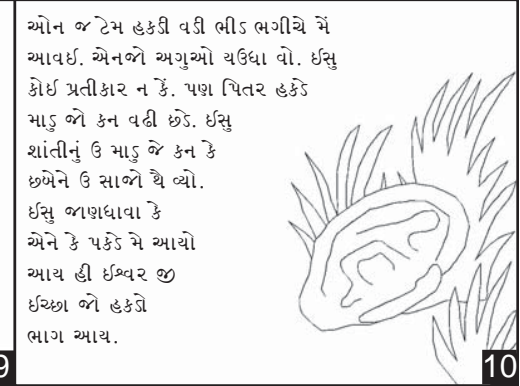 ઓન જ ટેમ હકડી વડી ભીડ ભગીચે મેં
આવઈ. એનજો અગુઓ યઉધા વો. ઈસુ
કોઈ પ્રતીકાર ન કેં. પણ પિતર હકડે
માડુ જો કન વઢી છડે. ઈસુ
શાંતીનું ઉ માડુ જે કન કે
છબેને ઉ સાજો થૈ વ્યો.
ઈસુ જાણધાવા કે
એને કે પકડે મે આયો
આય હી ઈશ્વર જી
ઈચ્છા જો હકડો
ભાગ આય.
9
10